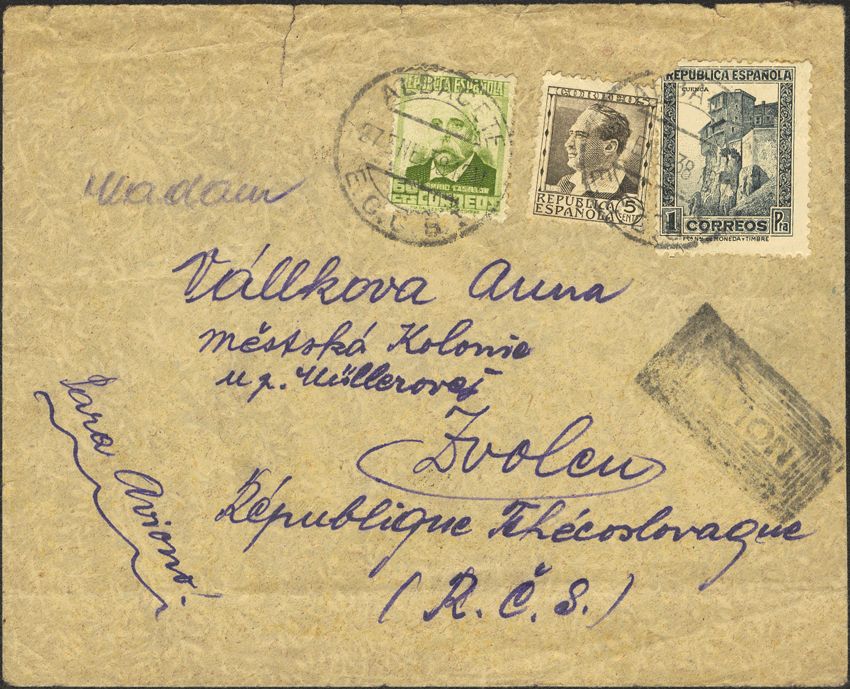 ALBACETE
REPUBLICA ESPAÑOLA
EMILIO CASTELAR
60 CTS CORREOS
CORREOS
REPUBLICA
ESPAÑOLA
5 CENTS
REPUBLICA ESPAÑOLA
CUENCA
1 CORREOS Pta
Madam
Vállkova Anna
městská Kolonie
u p. Müllerovej
Zvolen
République Tchécoslovaque
(R. Č. S.)
Para Avionó.
AVION